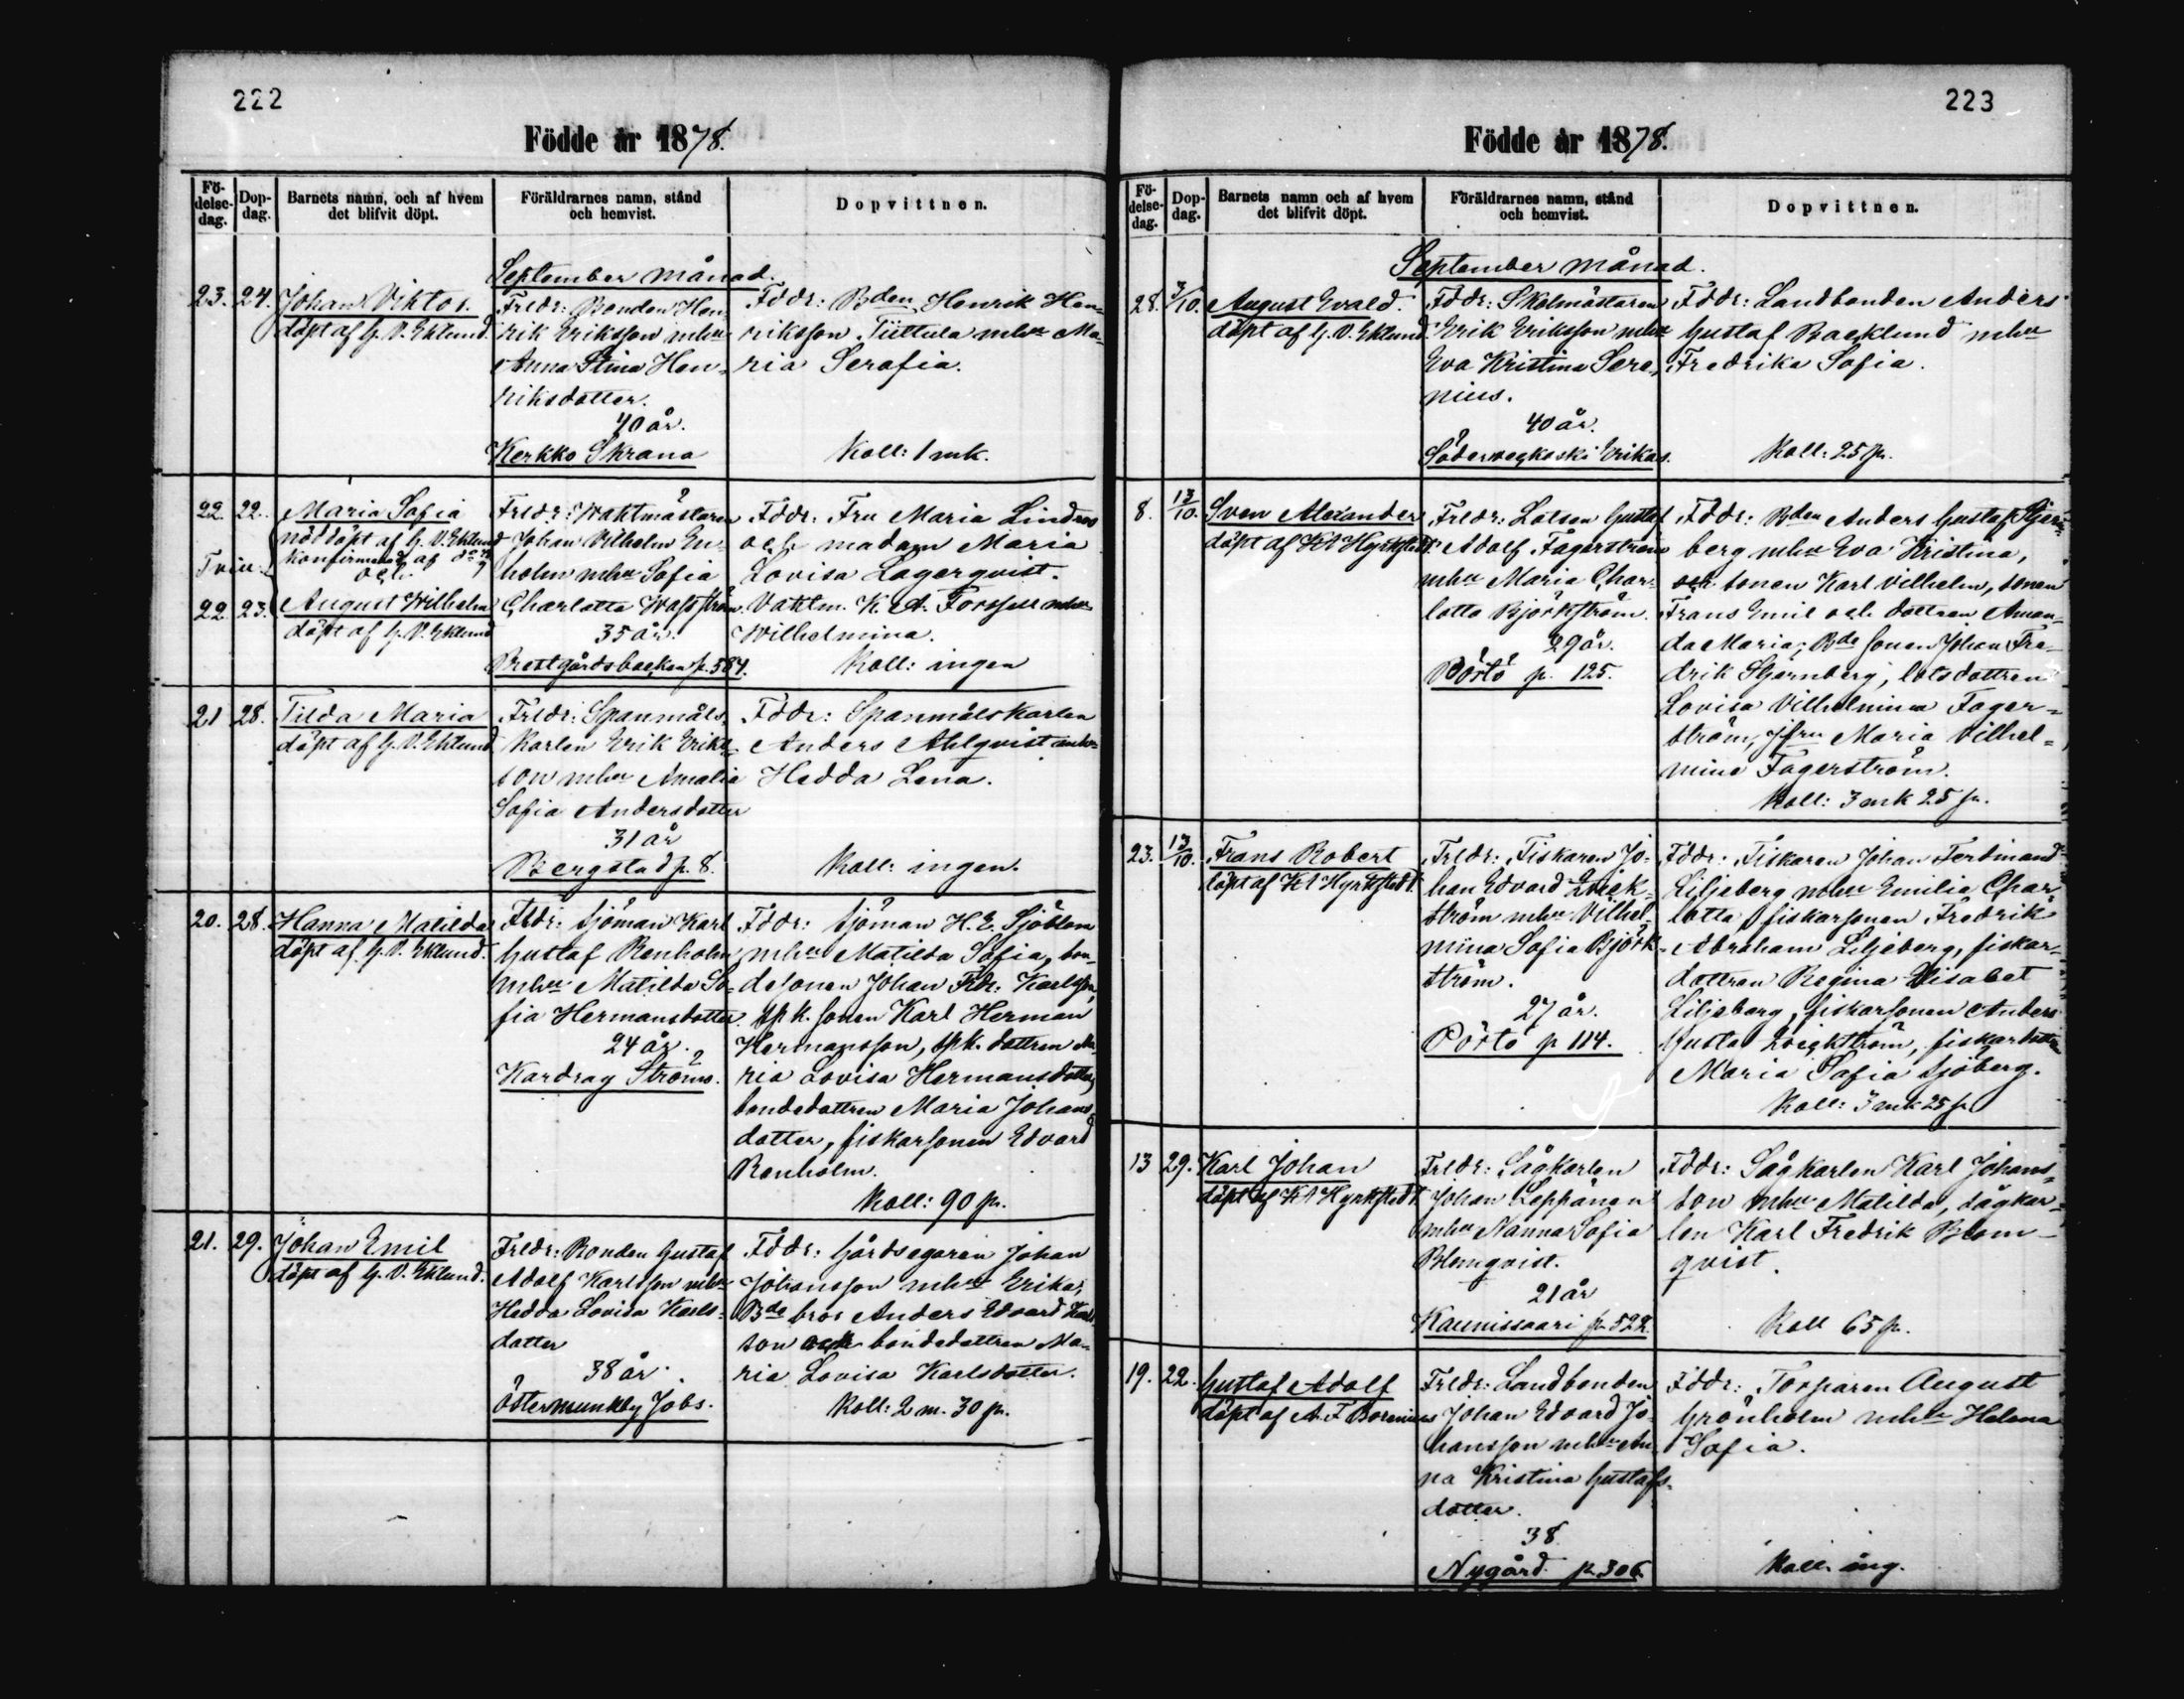 222
Födde år 1878.
Fö-
delse-
dag.
Dop-
dag.
Barnets namn, och af hvem
det blifvit döpt.
Föräldrarnes namn, stånd
och hemvist.
Dopvittnen.
September månad.
23. 24. Johan Viktor.
döpt af G. V. Eklund.
Frldr: Bonden Hen-
rik Eriksson mhu
Anna Stina Hen-
riksdotter.
40 år.
Kerkko Skrana
Fddr: Bden Henrik Hen-
riksson Tiittula mhu Ma-
ria Serafia.
Koll: 1 mk.
22. 22. Maria Sofia
nöddöpt af G. V. Eklund
konfirmerad af do
och
Tvill.
22. 23. August Wilhelm
döpt af G. V. Eklund
Frldr: Waktmästaren
Johan Vilhelm En-
holm mhu Sofia
Charlotta Wasström
35 år.
Prestgårdsbacken p. 584.
Fddr. Fru Maria Lindros
och madam Maria
Lovisa Lagerqvist.
Vaktm. K. A. Forssell mhu
Wilhelmina.
Koll: ingen
21 28. Tilda Maria
döpt af G. V. Eklund
Frldr: Spanmåls
karlen Erik Eriks-
son mhu Amalia
Sofia Andersdotter
31 år
Bergstad p. 8.
Fddr: Spanmålskarlen
Anders Ahlqvist mhu
Hedda Lena.
Koll: ingen.
20. 28. Hanna Matilda
döpt af G. V. Eklund.
Fldr: Sjöman Karl
Gustaf Renholm
mhu Matilda So-
fia Hermansdotter.
24 år.
Kardrag Ströms.
Fddr: Sjöman H. E. Sjöblom
mhu Matilda Sofia, bon-
desonen Johan Fdr: Karlsson,
spk. sonen Karl Herman
Hermansson, spk. dottren Ma-
ria Lovisa Hermansdotter,
bondedottren Maria Johans-
dotter, fiskarsonen Edvard
Renholm.
Koll: 90 p.
21. 29. Johan Emil
döpt af G. V. Eklund.
Frldr: Bonden Gustaf
Adolf Karlsson mhu
Hedda Lovisa Karls-
dotter
38 år.
Östermunkby Jobs.
Fddr: Gårdsegaren Johan
Johansson mhu Erika,
Bde bror Anders Edvard Karls-
son och bondedottren Ma-
ria Lovisa Karlsdotter.
Koll: 2 m. 30 p.
223
Födde år 1878.
Fö-
delse-
dag.
Dop-
dag.
Barnets namn och af hvem
det blifvit döpt.
Föräldrarnes namn, stånd
och hemvist.
Dopvittnen.
September månad.
28. 3/10. August Evald.
döpt af G. V. Eklund
Fddr: Skolmästaren
Erik Eriksson mhu
Eva Kristina Sere-
nius.
40 år.
Söderveckoski Erikas.
Fddr: Landbonden Anders
Gustaf Backlund mhu
Fredrika Sofia.
Koll: 25 p.
8. 13/10. Sven Alexander
döpt af KA Hyrkstedt.
Frldr: Lotsen Gustaf
Adolf Fagerström
mhu Maria Char-
lotta Björkström.
29 år.
Pörtö p. 125.
Fddr: Bden Anders Gustaf Stjern-
berg mhu Eva Kristina,
och sonen Karl Vilhelm, sonen
Frans Emil och dottren Aman-
da Maria; Bde sonen Johan Fre-
drik Stjernberg, lotsdottren
Lovisa Vilhelmina Fager-
ström, jfru Maria Vilhel-
mina Fagerström.
Koll: 3 mk 25 p.
23. 13/10. Frans Robert
döpt af KA Hyrkstedt.
Frldr: Fiskaren Jo-
han Edvard Qvick-
ström mhu Vilhel-
mina Sofia Björk-
ström.
27 år.
Pörtö p 114.
Fddr: Fiskaren Johan Ferdinand
Liljeberg mhu Emilia Char
lotta, fiskarsonen Fredrik
Abraham Liljeberg, fiskar-
dottren Regina Elisabet
Liljeberg, fiskarsonen Anders
Gusta Qvickström, fiskardottren
Maria Sofia Sjöberg.
Koll: 3 mk 25 p
13 29. Karl Johan
döpt af KA Hyrkstedt.
Frldr: Sågkarlen
Johan Leppänen
mhu Nanna Sofia
Blomqvist.
21 år
Kaunissaari p. 522.
Fddr: Sågkarlen Karl Johans-
son mhu Matilda, sågkar-
len Karl Fredrik Blom-
qvist.
Koll 65 p.
19. 22. Gustaf Adolf
döpt af A. F. Borenius
Frldr: Landbonden
Johan Edvard Jo-
hansson mhu An-
na Kristina Gustafs-
dotter.
38
Nygård p. 306.
Fddr: Torparen August
Grönholm mhu Helena
Sofia.
Koll: ing.